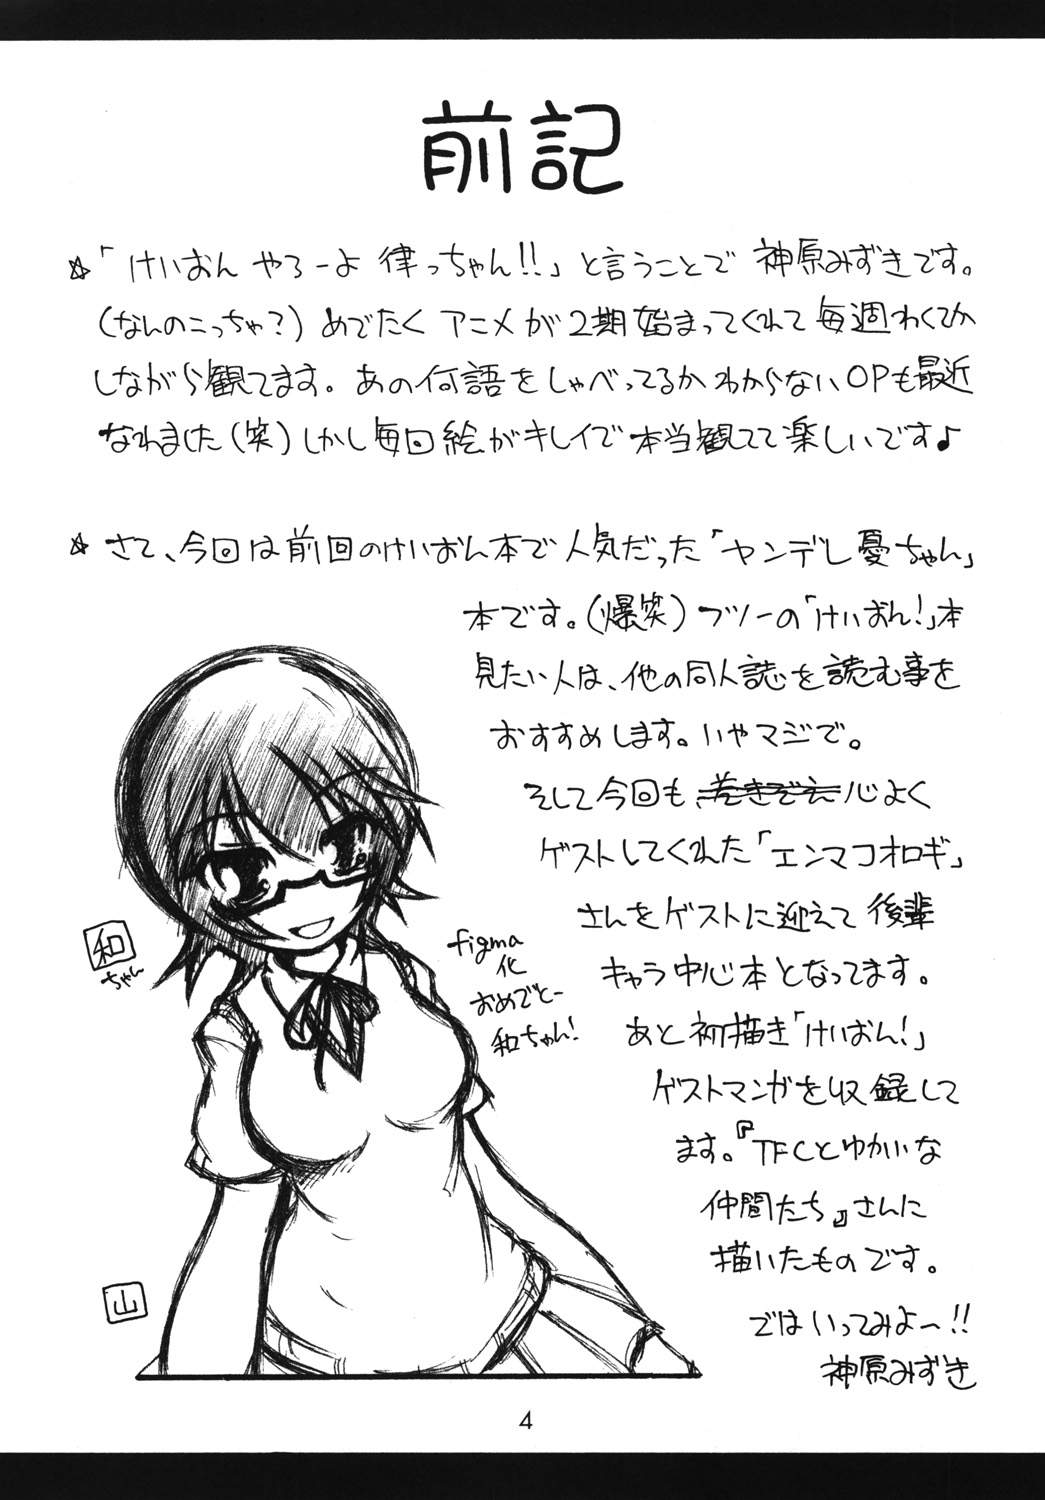 前記
☆「けいおん やろーよ 律っちゃん!!」と言うことで 神原みずきです。
(なんのこっちゃ?)めでたく アニメが2期始まってくれて毎週わくてか
しながら観てます。あの何語をしゃべってるかわからないOPも最近
なれました(笑)しかし毎回絵がキレイで本当観てて楽しいです♪
☆ さて、今回は前回のけいおん本で人気だった「ヤンデレ憂ちゃん」
本です。(爆笑)フツーの「けいおん!」本
見たい人は、他の同人誌を読む事を
おすすめします。いやマジで。
そして今回も 巻きぞえ 心よく
ゲストしてくれた「エンマコオロギ」
さんをゲストに迎えて後輩
キャラ中心本となってます。
あと初描き「けいおん!」
ゲストマンガを収録して
ます。『TFCとゆかいな
仲間たち』さんに
描いたものです。
ではいってみよ〜!!
神原みずき
figma
化
おめでとー
和ちゃん!
和
ちゃん
山
4